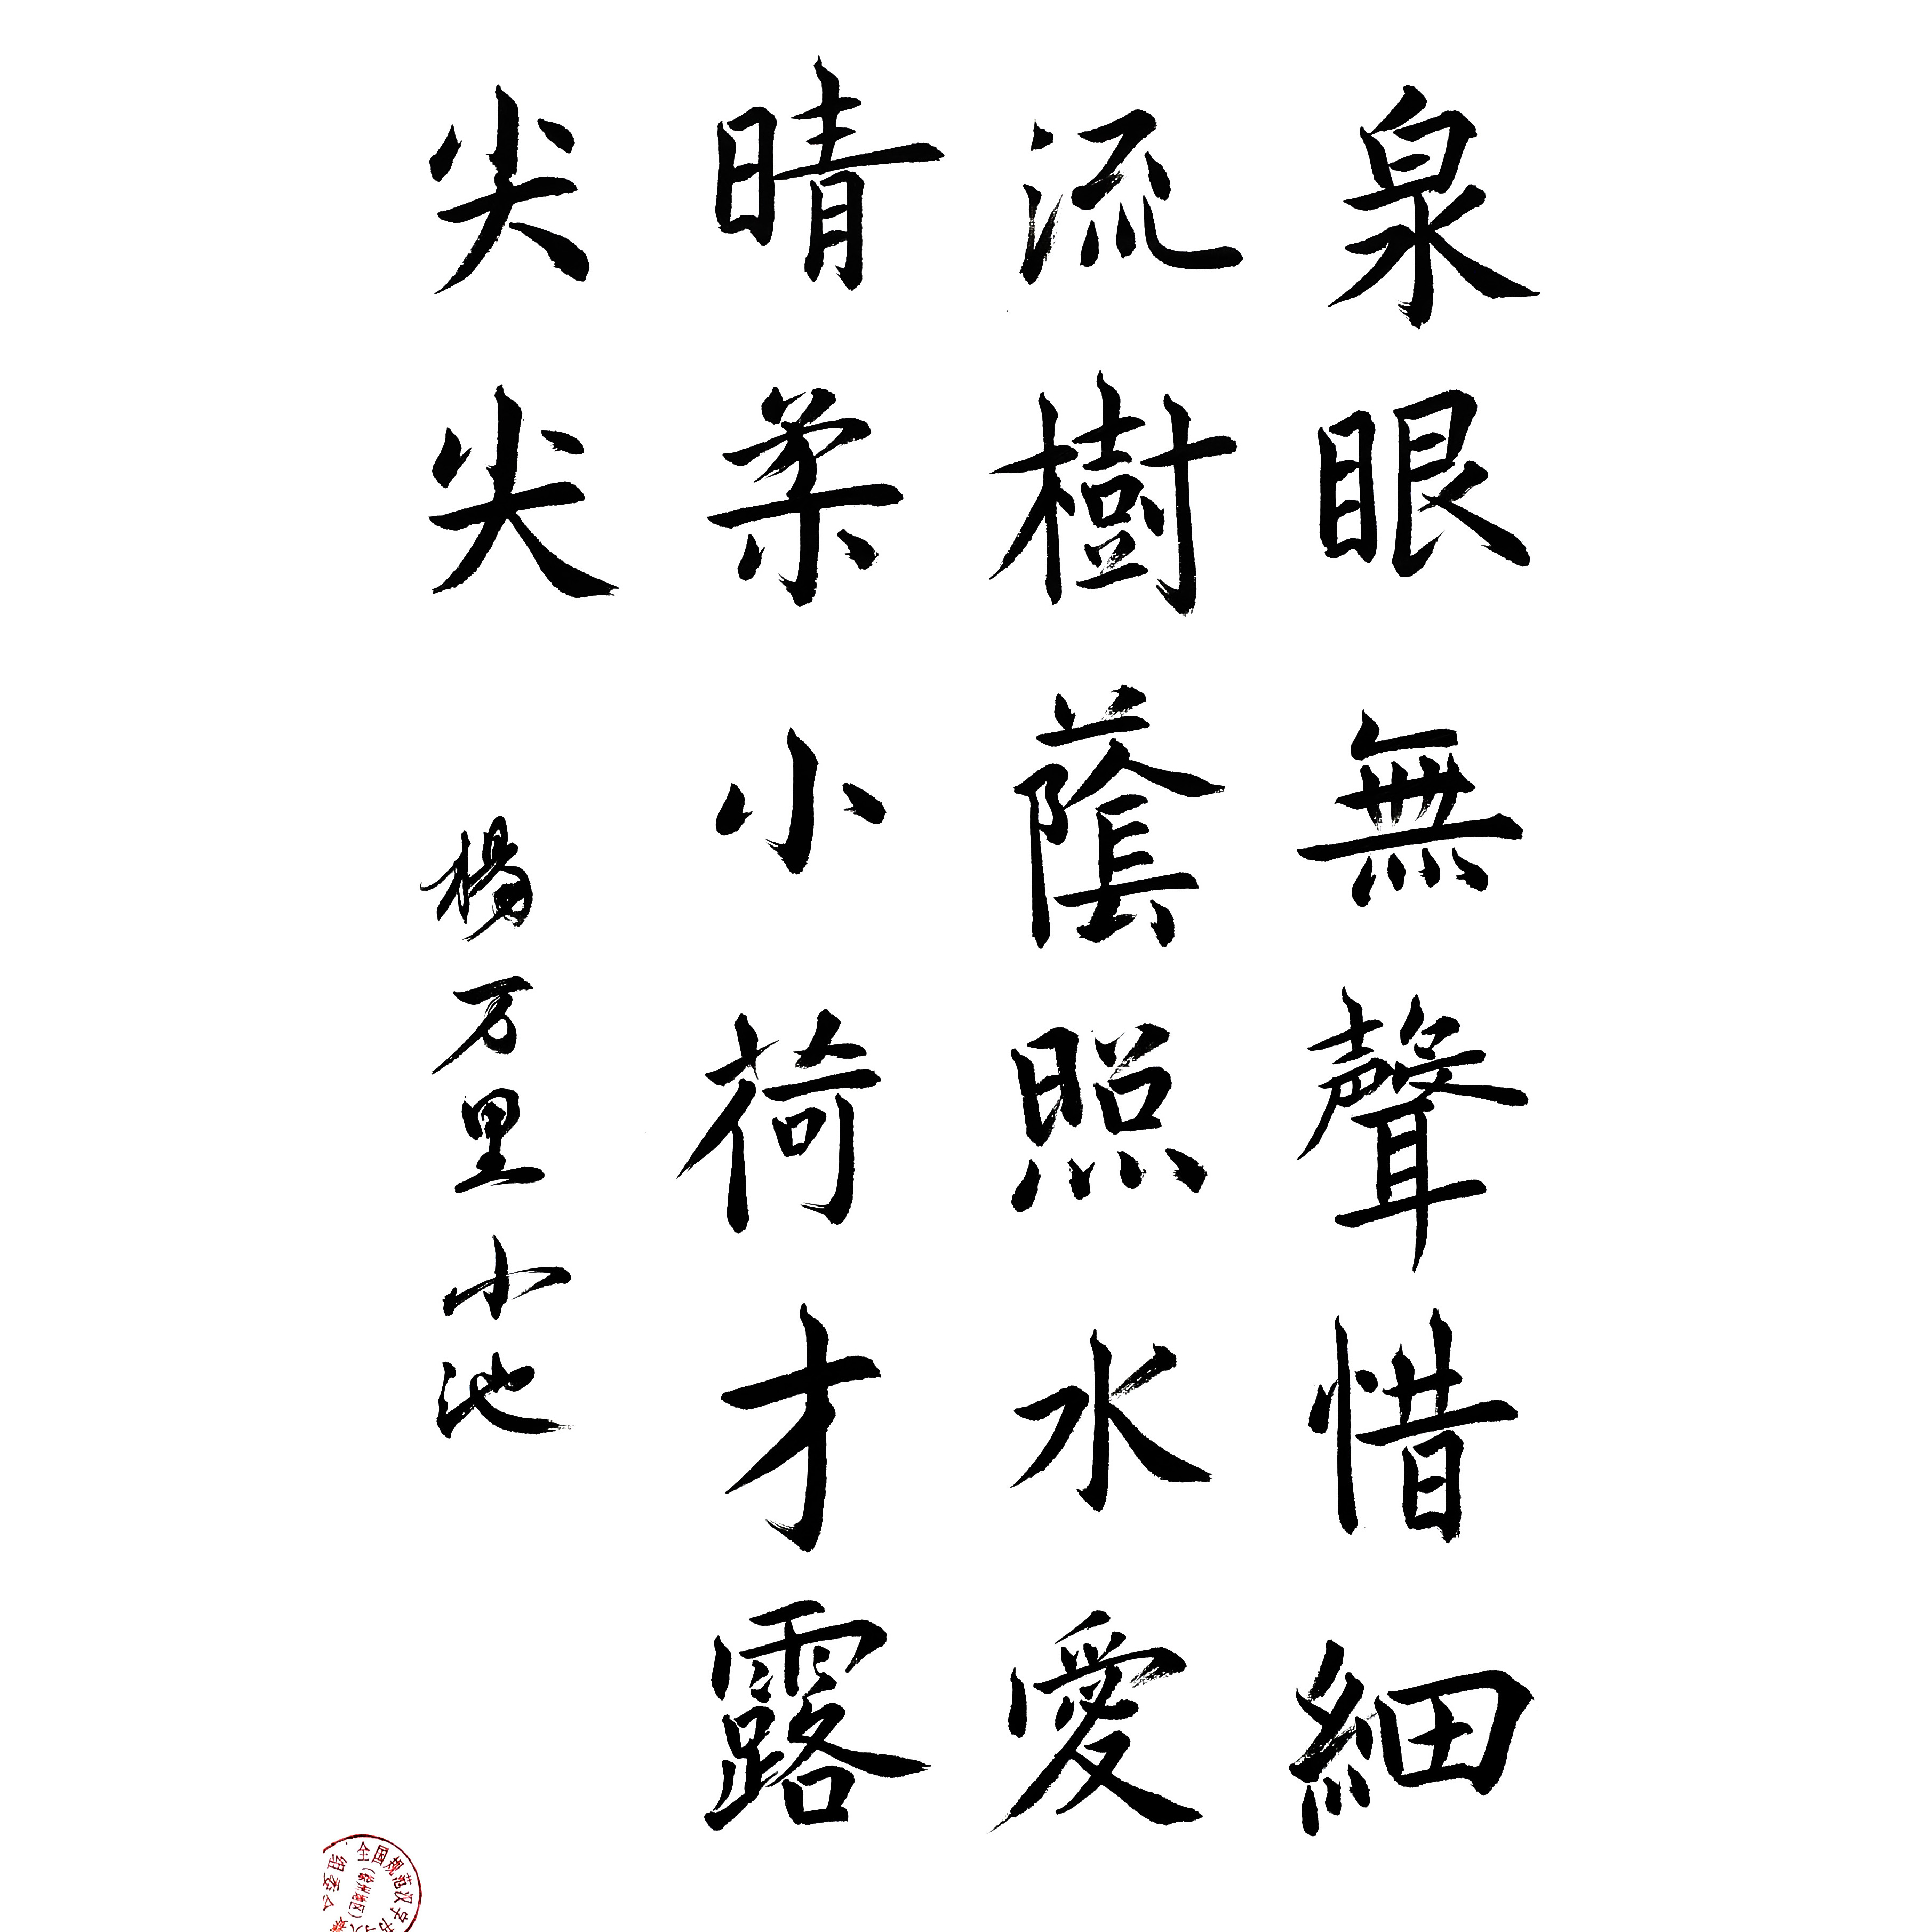 泉眼無聲惜細
流樹蔭照水愛
晴柔小荷才露
尖尖
楊万里小池
全国规范汉字
组委会